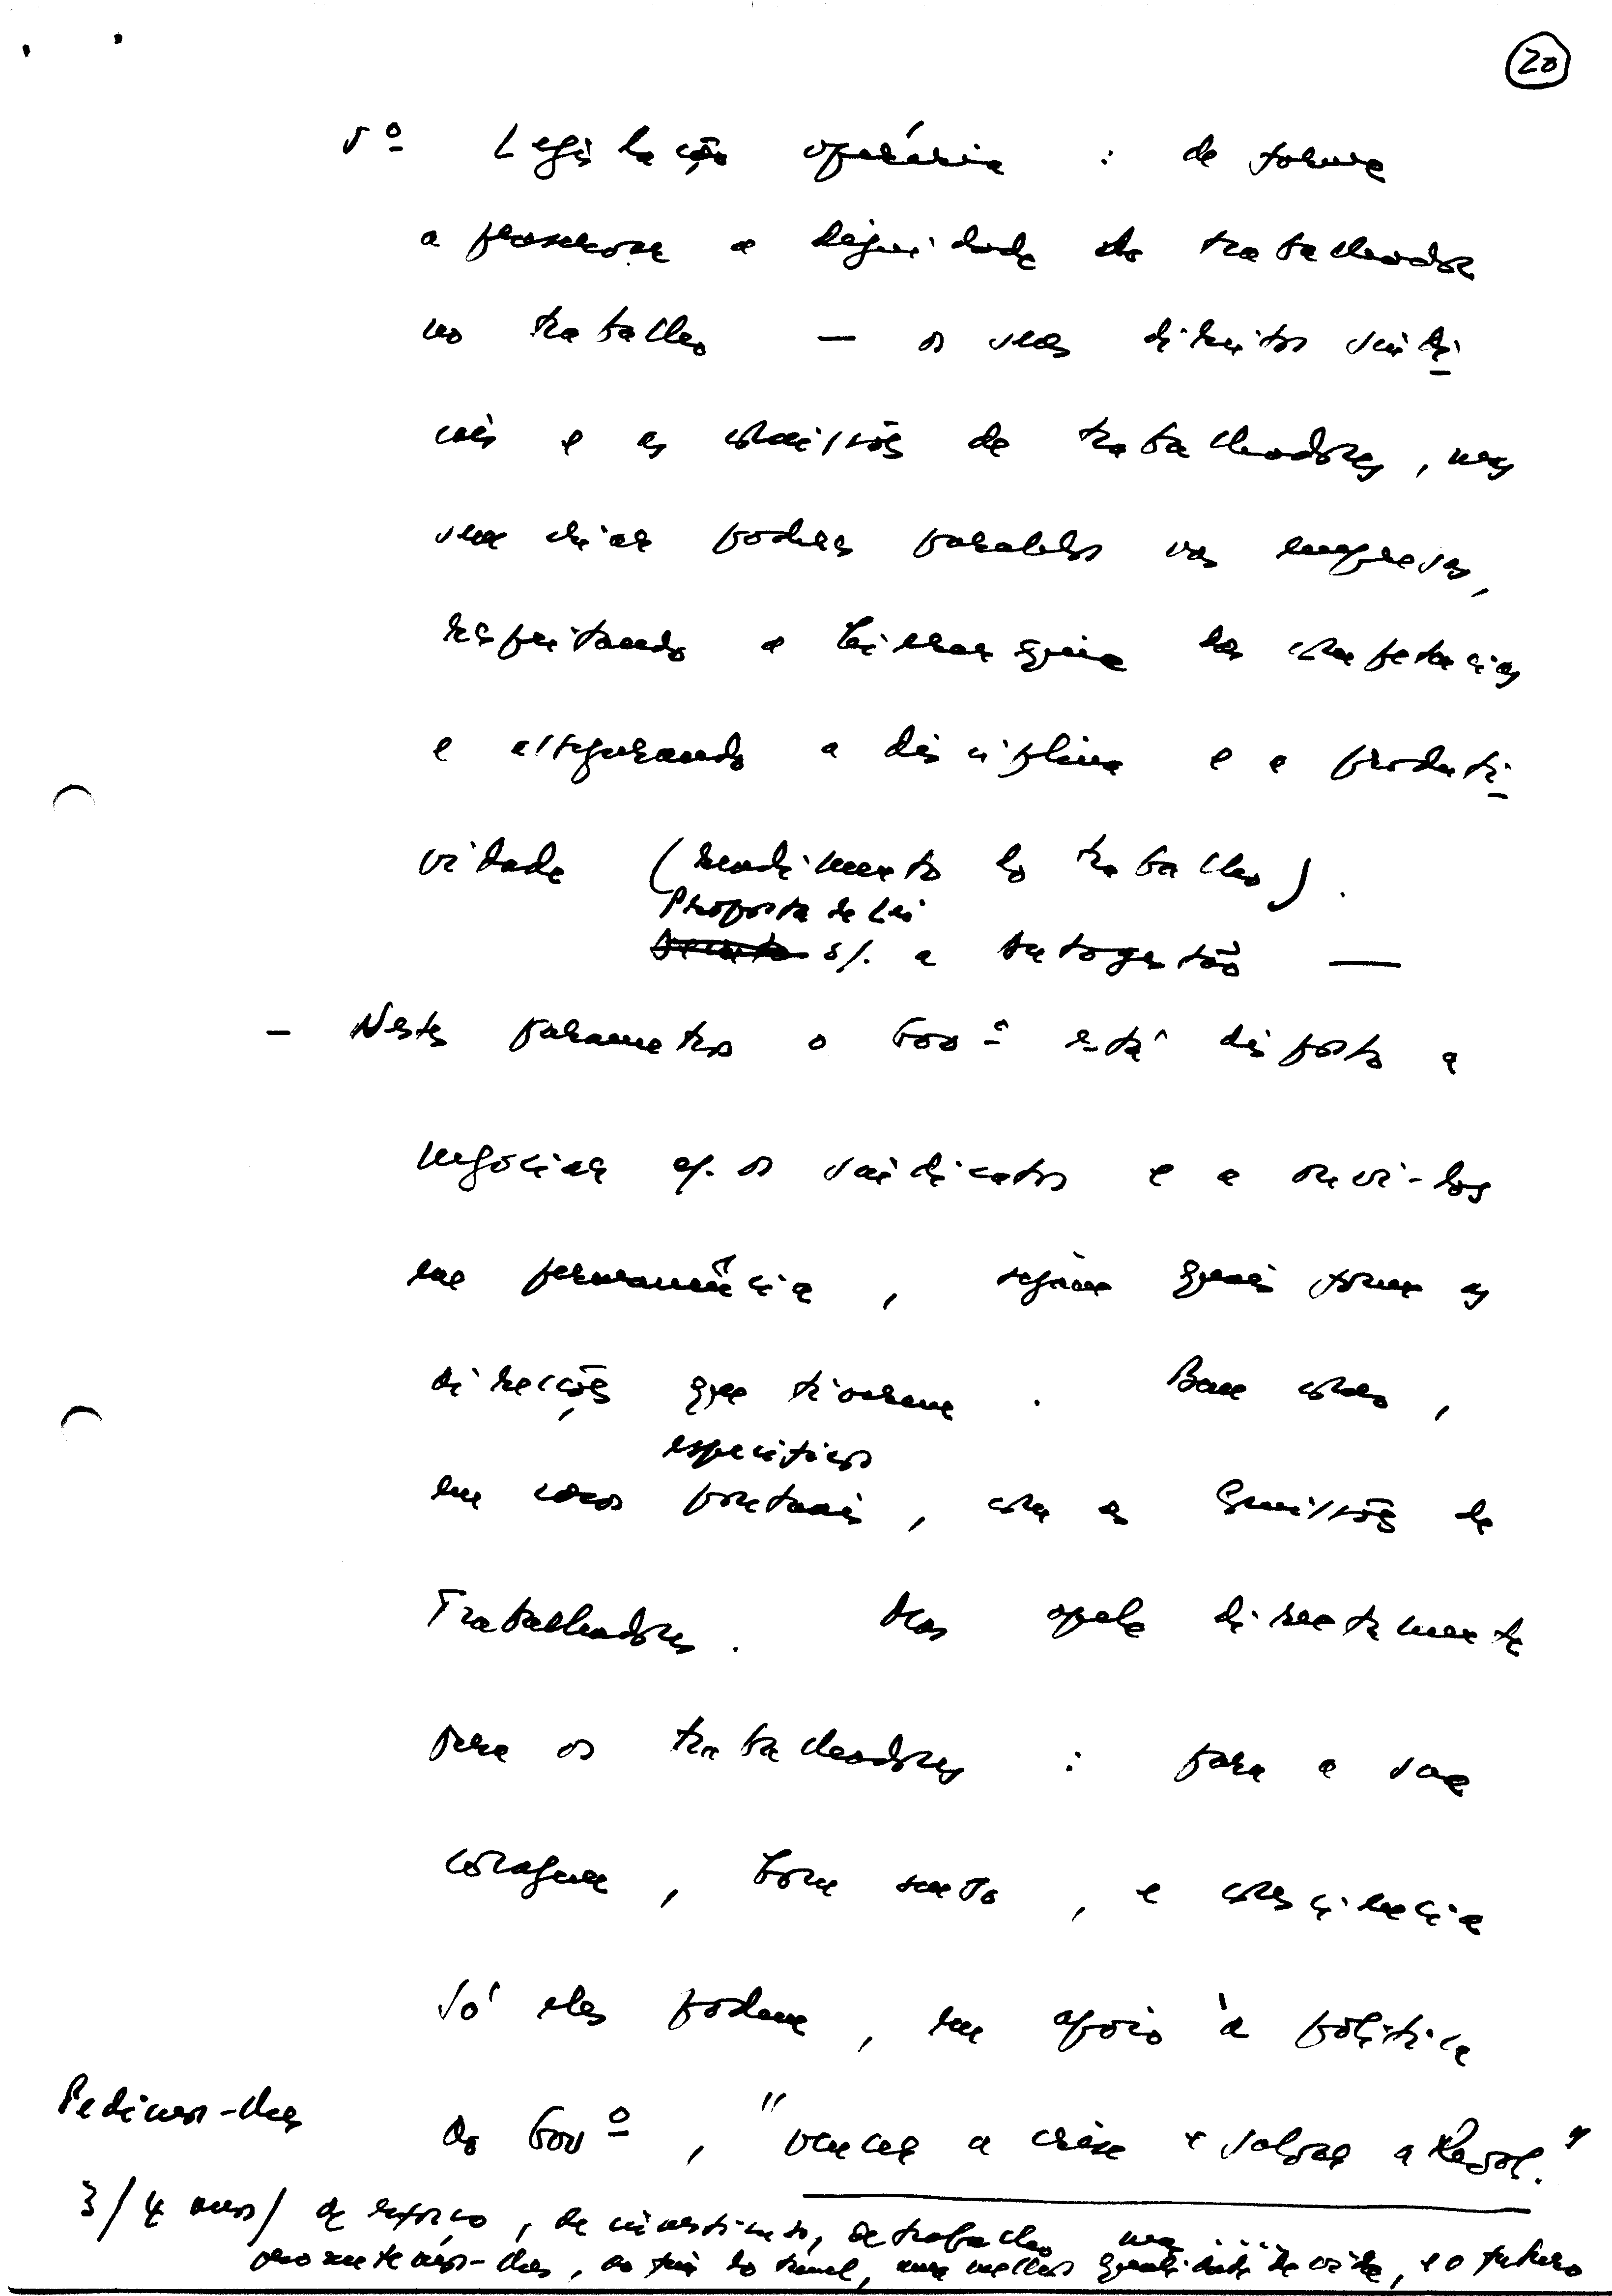 20
5º Legislação operária : de forma
a preservar a dignidade do trabalhador
no trabalho — os seus direitos sindi
cais e as comissões de trabalhadores, mas
sem criar poderes paralelos nas empresas,
respeitando a hierarquia das competencias
e assegurando a disciplina e a produti
vidade (rendimento do trabalho).
Proposta de Lei
Decreto s/. a Autogestão —
- Nestes parametros o Govº está disposto a
negociar c/. os sindicatos e a ouvi-los
em permanência, sejam quais forem as
direcções que tiverem. Bem como,
especificos
em casos pontuais, com as Comissões de
Trabalhadores. Mas apela directamente
para os trabalhadores : para a sua
coragem, bom senso, e consciencia
Só eles podem, em apoio à politica
do Govº, "vencer a crise e salvar a Revol."
Pedimos-lhes
3/4 anos/ de esforço, de investimento, de trabalho mas ...
prometemos-lhes, ao fim do tunel, uma melhor qualidade de vida, e o futuro